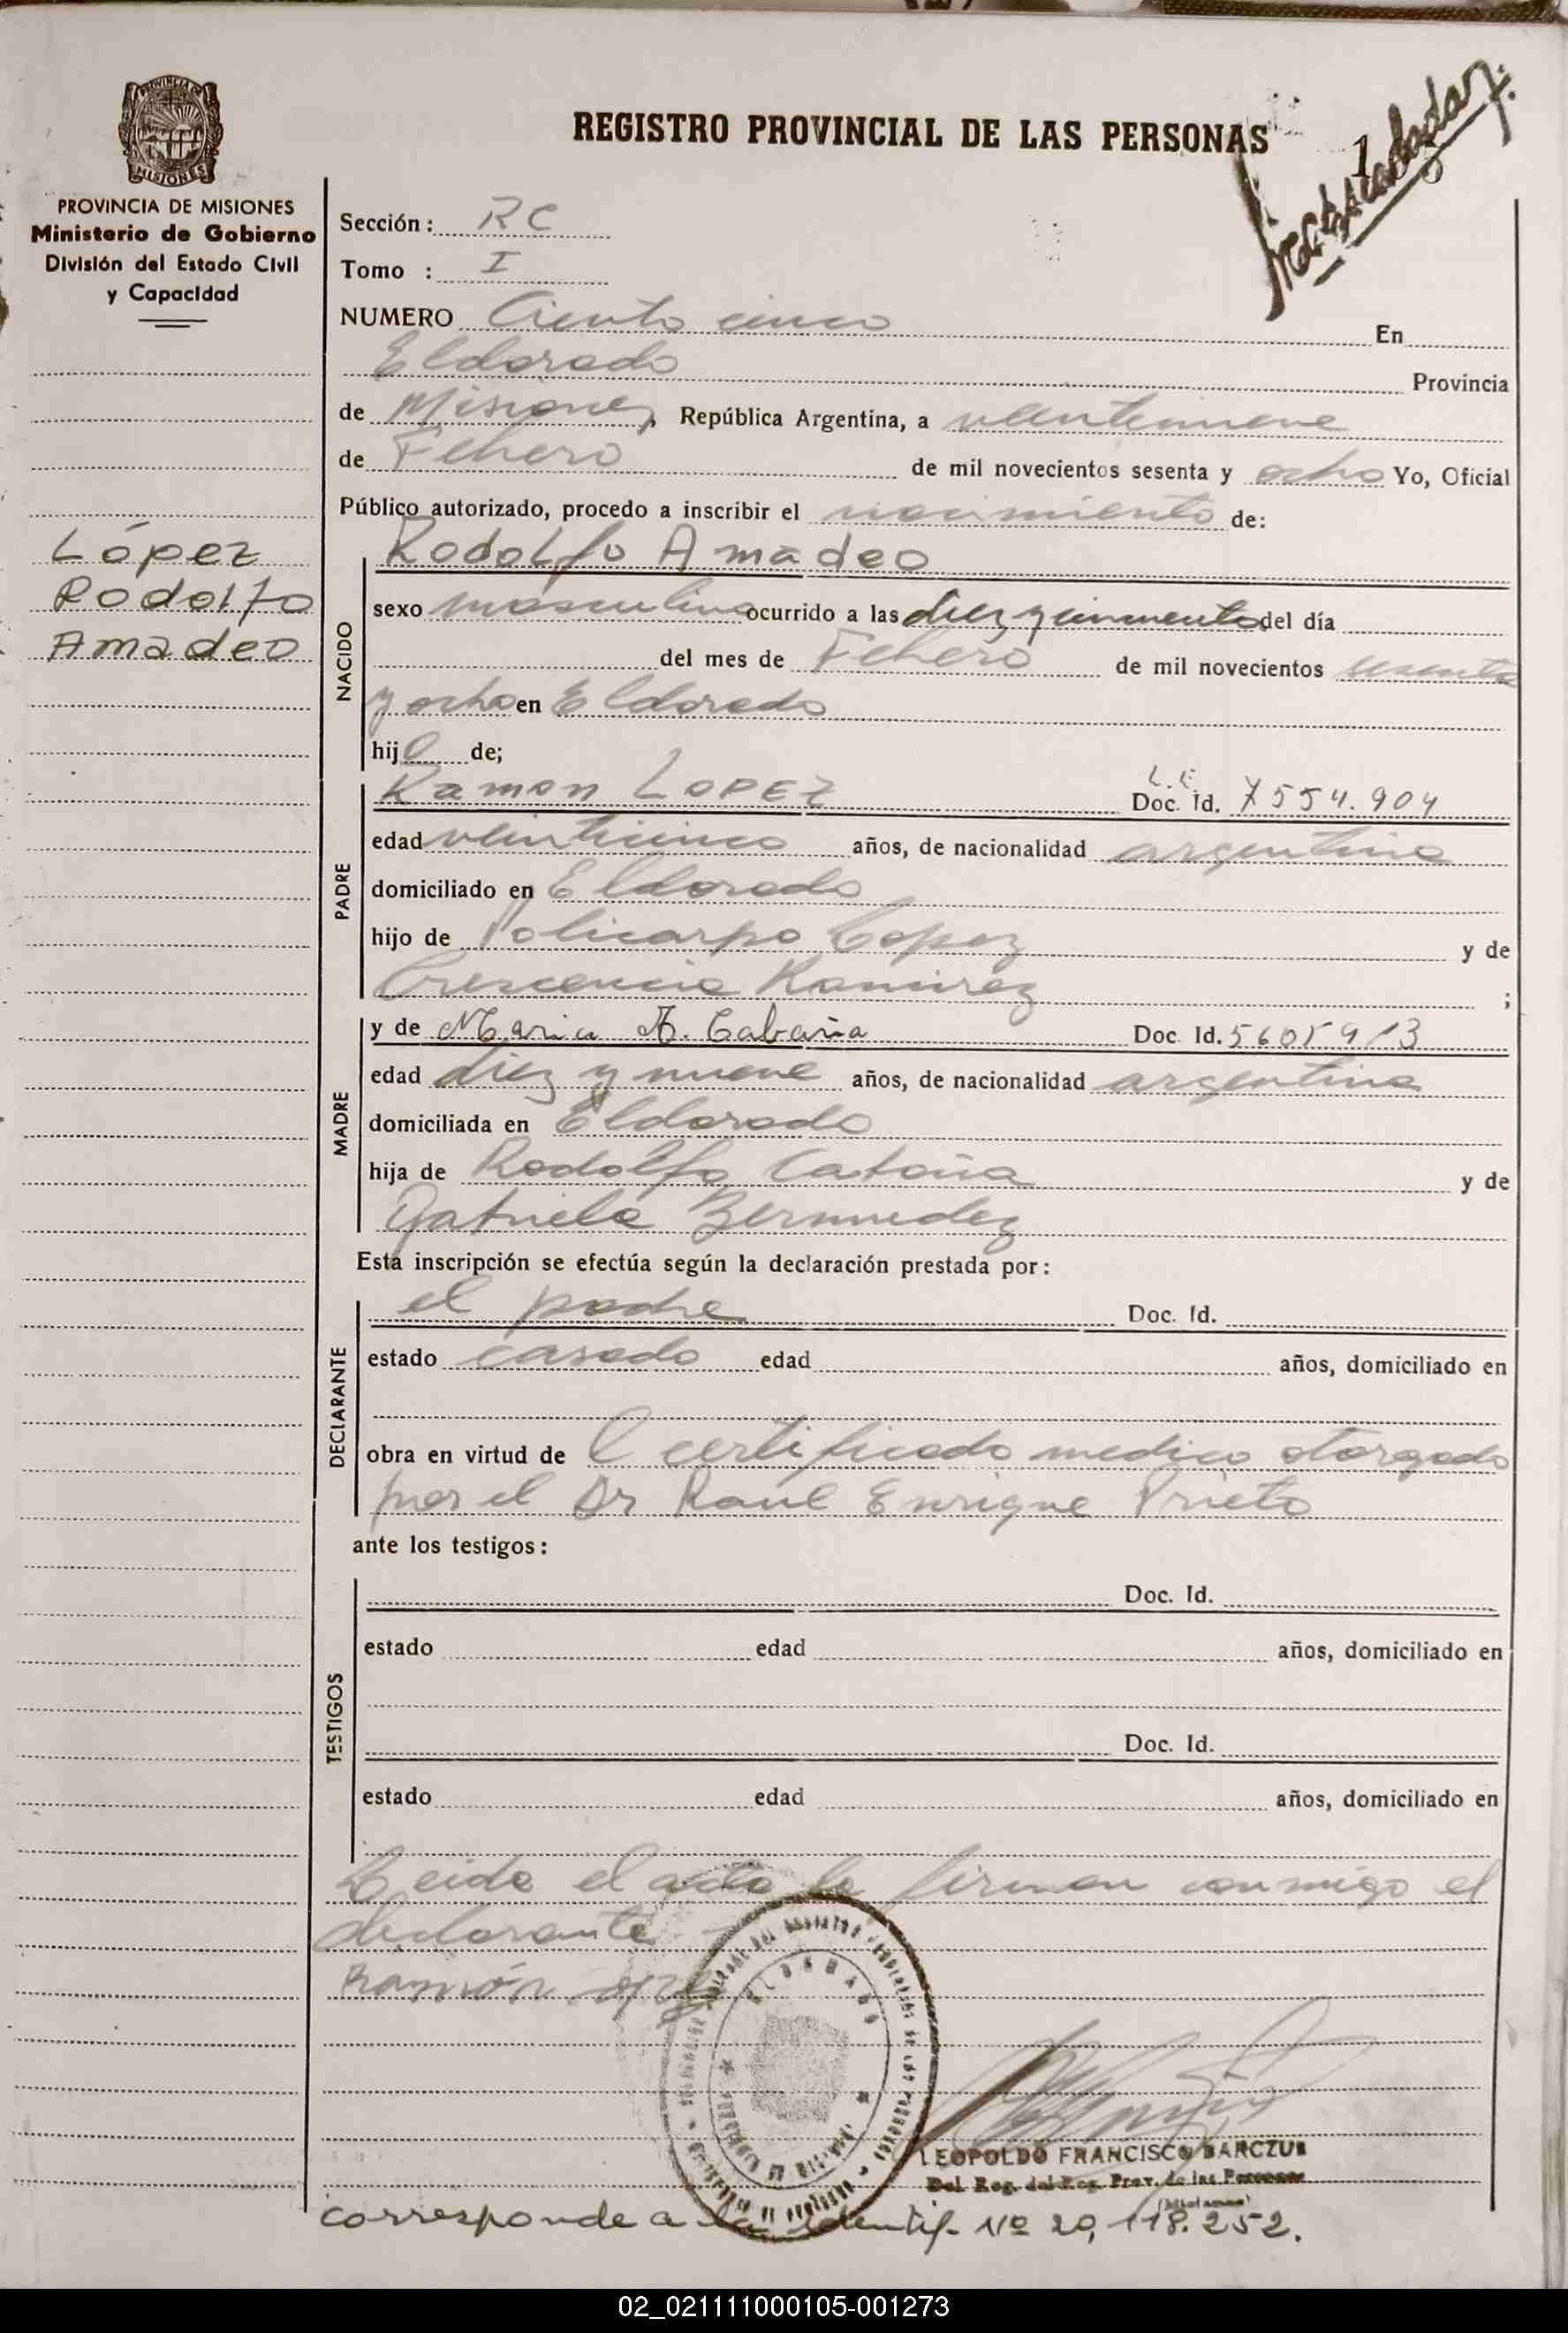 PROVINCIA DE MISIONES
Ministerio de Gobierno
División del Estado Civil
y Capacidad
López
Rodolfo
Amadeo
REGISTRO PROVINCIAL DE LAS PERSONAS
1
Sección: RC
Tomo : I
NUMERO Ciento cinco En
Eldorado Provincia
de Misiones, República Argentina, a veintinueve
de Febrero de mil novecientos sesenta y ocho Yo, Oficial
Público autorizado, procedo a inscribir el nacimiento de:
NACIDO
Rodolfo Amadeo
sexo masculino ocurrido a las diez y cincuenta del día
del mes de Febrero de mil novecientos sesenta
y ocho en Eldorado
hijo de;
PADRE
Ramon LOPEZ L.E. Doc. Id. 7554.904
edad veinticinco años, de nacionalidad argentina
domiciliado en Eldorado
hijo de Policarpo Lopez y de
Crescencia Ramirez ;
MADRE
y de Maria A. Cabaña Doc. Id. 5605913
edad diez y nueve años, de nacionalidad argentina
domiciliada en Eldorado
hija de Rodolfo Cabaña y de
Gabriela Bermudez
Esta inscripción se efectúa según la declaración prestada por:
DECLARANTE
el padre Doc. Id.
estado casado edad años, domiciliado en
obra en virtud de l certificado medico otorgado
por el Dr Raul Enrique Prieto
ante los testigos:
TESTIGOS
Doc. Id.
estado edad años, domiciliado en
Doc. Id.
estado edad años, domiciliado en
Leida el acta la firman conmigo el
declarante. -
Ramón
ELDORADO
LEOPOLDO FRANCISCO BARCZUK
Del Reg. del Reg. Prov. de las Personas
(Misiones)
corresponde a la identif. Nº 20,118.252.
02_021111000105-001273